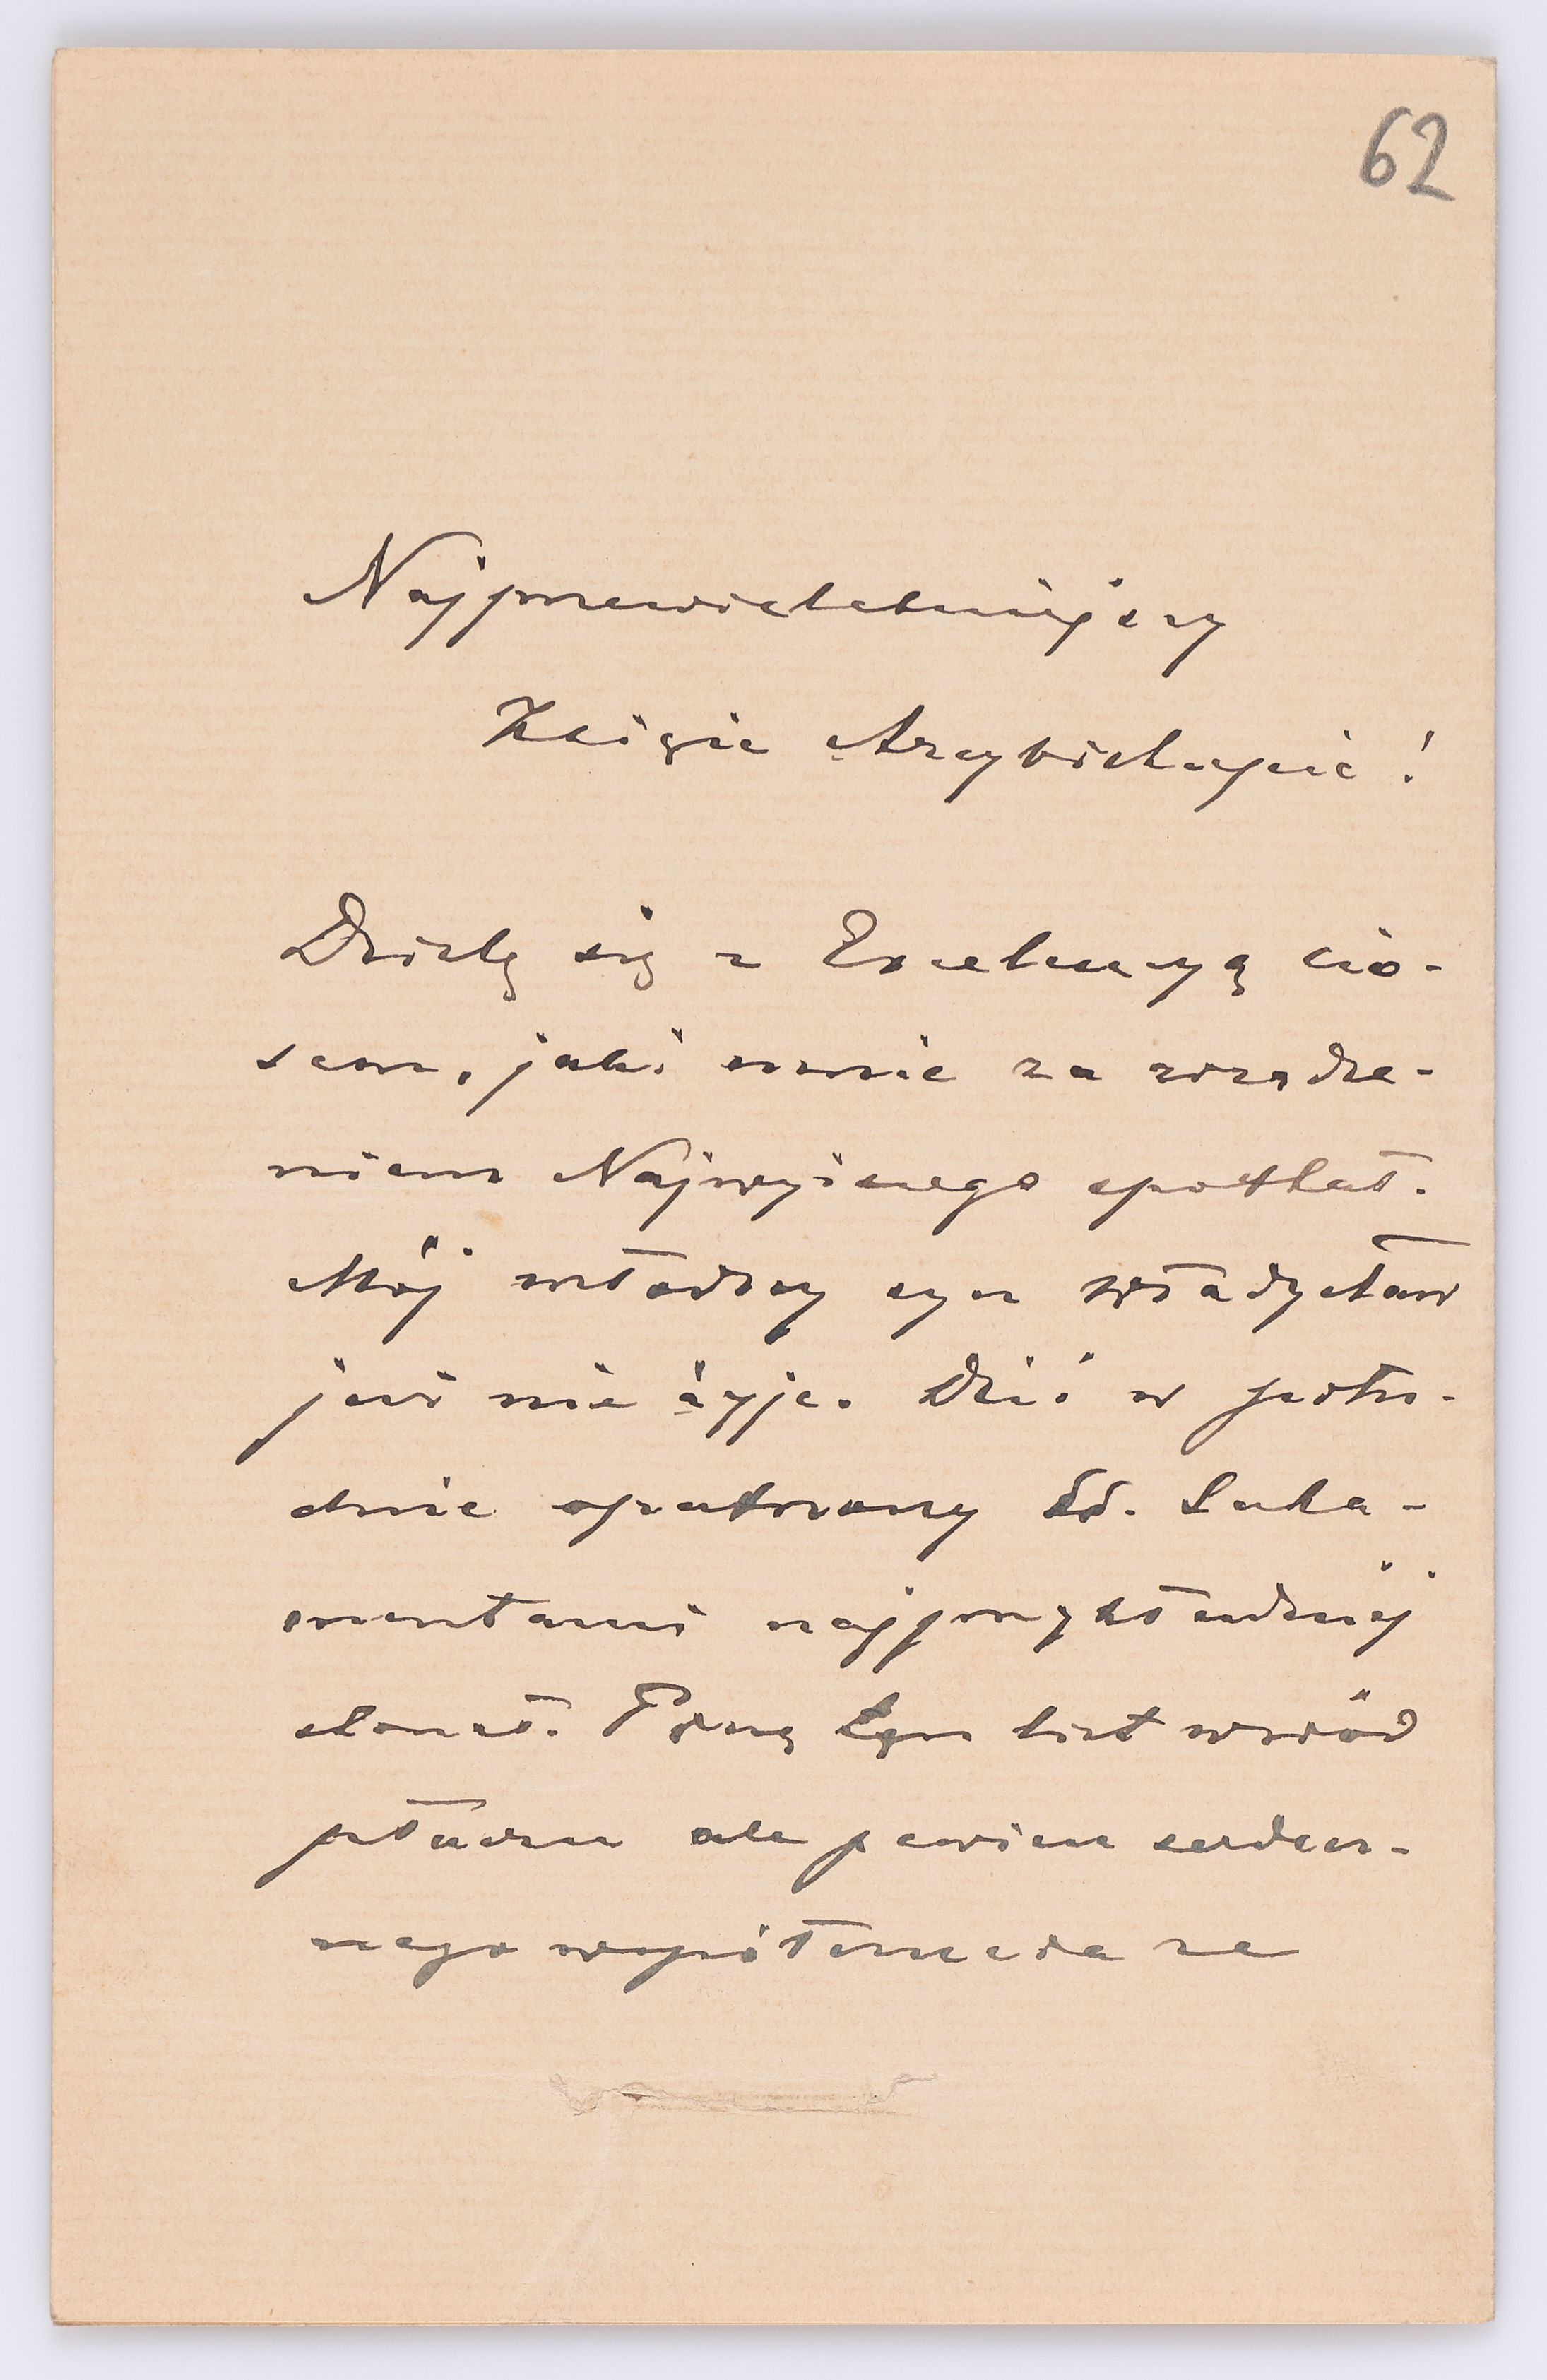 62
Najprzewielebniejszy
Księże Arcybiskupie!
Dzielę się z Excelencyą cio-
sem, jaki mnie za zrządze-
niem Najwyższego spotkał.
Mój młodszy syn Władysław
już nie żyje. Dziś w połu-
dnie opatrzony SS. Sakra-
mentami najprzykładniej
skonał. Piszę ten list wśród
płaczu ale pewien serdecz-
nego współczucia ze